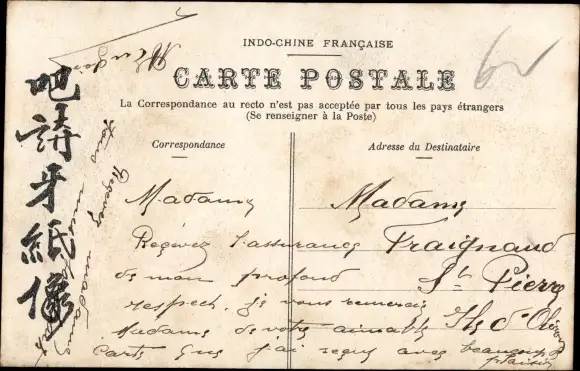 INDO-CHINE FRANÇAISE
CARTE POSTALE
La Correspondance au recto n'est pas acceptée par tous les pays étrangers
(Se renseigner à la Poste)
Correspondance
Adresse du Destinataire
吧請牙紙像
Madame
Reçevez l'assurance
de mon profond
respect. je vous remercie
Madame de votre aimable
carte que j'ai reçus avec beaucoup
plaisir
Madame
Fraignaud
St Pierre
Ile d'Oléron
Recevez madame